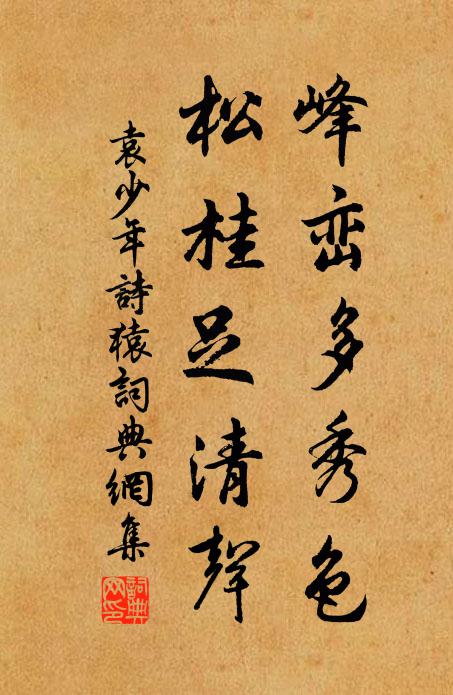 峰峦多秀色
松桂足清聲
袁少年詩猿詞典網集
詞典網印